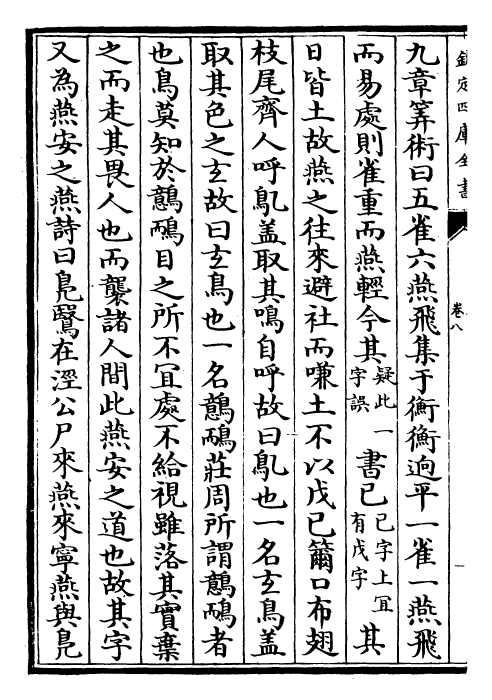 欽定四庫全書
卷八
九章筭術曰五雀六燕飛集于衡衡適平一雀一燕飛
而易處則雀重而燕輕今其疑此字誤一書已已字上冝有戊字其
日皆土故燕之往來避社而嗛土不以戊已籋口布翅
枝尾齊人呼鳦盖取其鳴自呼故曰鳦也一名玄鳥盖
取其色之玄故曰玄鳥也一名鷾鴯莊周所謂鷾鴯者
也鳥莫知於鷾鴯目之所不冝處不給視雖落其實棄
之而走其畏人也而襲諸人間此燕安之道也故其字
又為燕安之燕詩曰鳬鷖在涇公尸來燕來寧燕與鳬